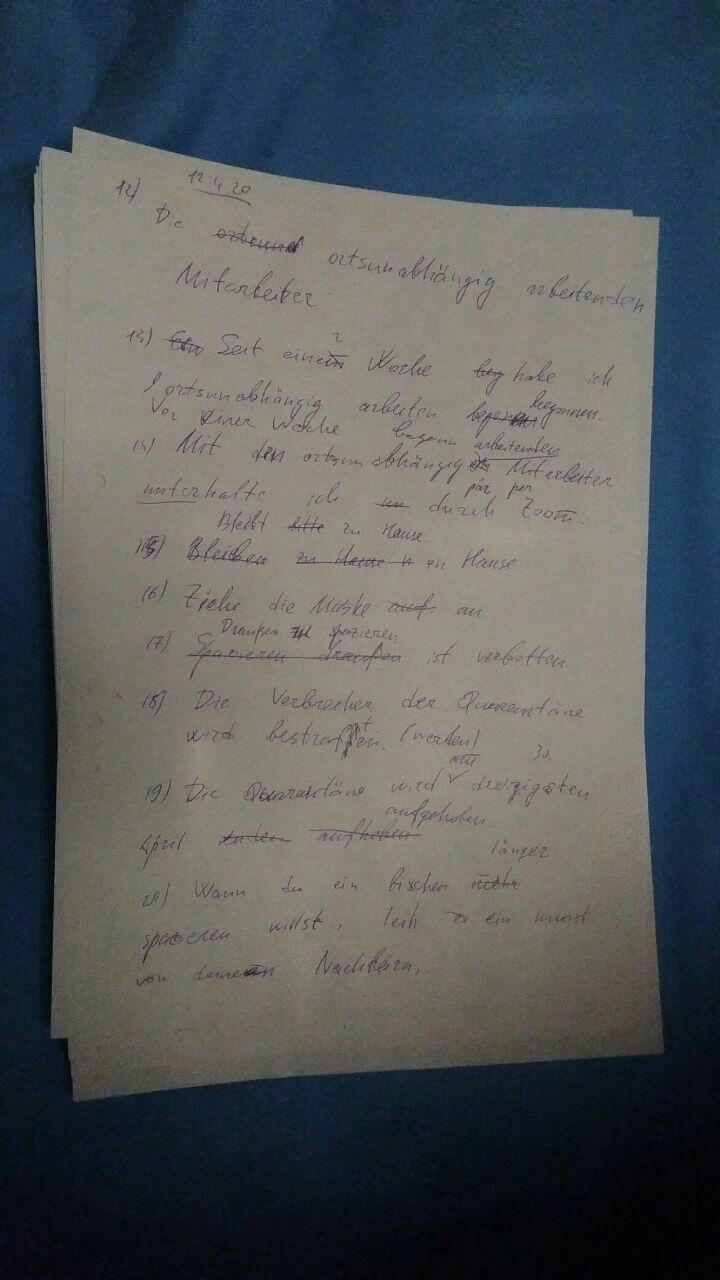 12.4.20
12) Die ortsunabhängig arbeitenden
Mitarbeiter
13) Seit einer Woche habe ich
ortsunabhängig arbeiten begonnen.
Vor einer Woche begann arbeitenden
14) Mit den ortsunabhängig Mitarbeiter
per
unterhalte ich durch Zoom.
Bleibt bitte zu Hause
15) Bleiben zu Hause zu Hause
16) Ziehe die Maske auf. an
Draußen zu spazieren
17) Spazieren draußen ist verbotten.
18) Die Verbrecher der Quarantäne
wird bestraft. (werden)
am 30.
19) Die Quarantäne wird dreizigsten
aufgehoben.
April aufheben
länger
20) Wann du ein bischen mehr
spazieren willst, leih ein hund
von deinen Nachbarn.